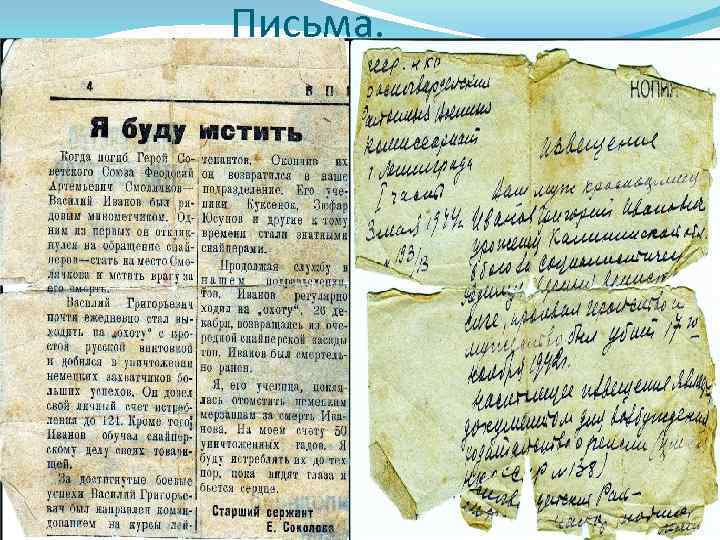 Письма.
4
В П
Я буду мстить
Когда погиб Герой Со-
ветского Союза Феодосий
Артемьевич Смолячков—
Василий Иванов был ря-
довым минометчиком. Од-
ним из первых он отклик-
нулся на обращение снай-
перов—стать на место Смо-
лячкова и мстить врагу за
его смерть.
Василий Григорьевич
почти ежедневно стал вы-
ходить на „охоту" с про-
стой русской винтовкой
и добился в уничтожении
немецких захватчиков бо-
льших успехов. Он довел
свой личный счет истреб-
ления до 121. Кроме того,
Иванов обучал снайпер-
скому делу своих товари-
щей.
За достигнутые боевые
успехи Василий Григорье-
вич был направлен коман-
дованием на курсы лей-
тенантов. Окончив их
он возвратился в наше
подразделение. Его уче-
ники Куксенок, Зюфар
Юсупов и другие к тому
времени стали знатными
снайперами.
Продолжая службу в
нашем подразделении,
тов. Иванов регулярно
ходил на „охоту". 26 де-
кабря, возвращаясь из оче-
редной снайперской засады
тов. Иванов был смертель-
но ранен.
Я, его ученица, покля-
лась отомстить немецким
мерзавцам за смерть Ива-
нова. На моем счету 50
уничтоженных гадов. Я
буду истреблять их до тех
пор, пока видят глаза и
бьется сердце.
Старший сержант
Е. Соколова
КОПИЯ
НКО
Красногвардейский
Районный Военный
комиссариат
г. Ленинграда
I часть
3 мая 1944г.
извещение
Ваш муж красноармеец
Иванов Григорий Иванович
урожен Калининской обл
в бою за социалистическ
родину
проявил геройство и
мужество был убит 17го
ноября 1942г.
настоящее извещение является
документом для возбуждения
ходатайства о пенсии
СССР № 138)